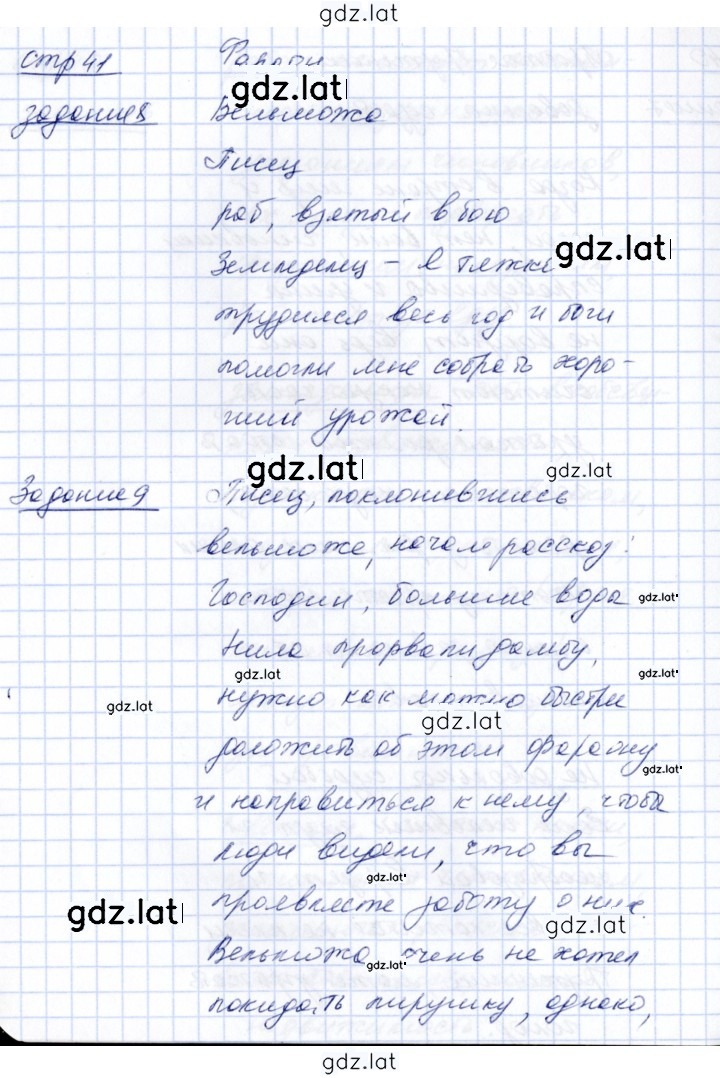 gdz.lat
стр 41
gdz.lat
задание 8 Вельможа
Писец
раб, взятый в бою
gdz.lat
Земледелец - Я тяжко
трудился весь год и боги
помогли мне собрать хоро-
ший урожай.
gdz.lat gdz.lat
Задание 9 Писец, поклонившись
вельможе, начал рассказ:
Господин, большие воды gdz.lat
Нила прорвали дамбу,
gdz.lat gdz.lat
нужно как можно быстрее
gdz.lat gdz.lat
доложить об этом фараону
gdz.lat
и направиться к нему, чтобы
люди видели, что вы
gdz.lat
проявляете заботу о них.
gdz.lat gdz.lat
Вельможа очень не хотел
gdz.lat
покидать пирушку, однако,
gdz.lat